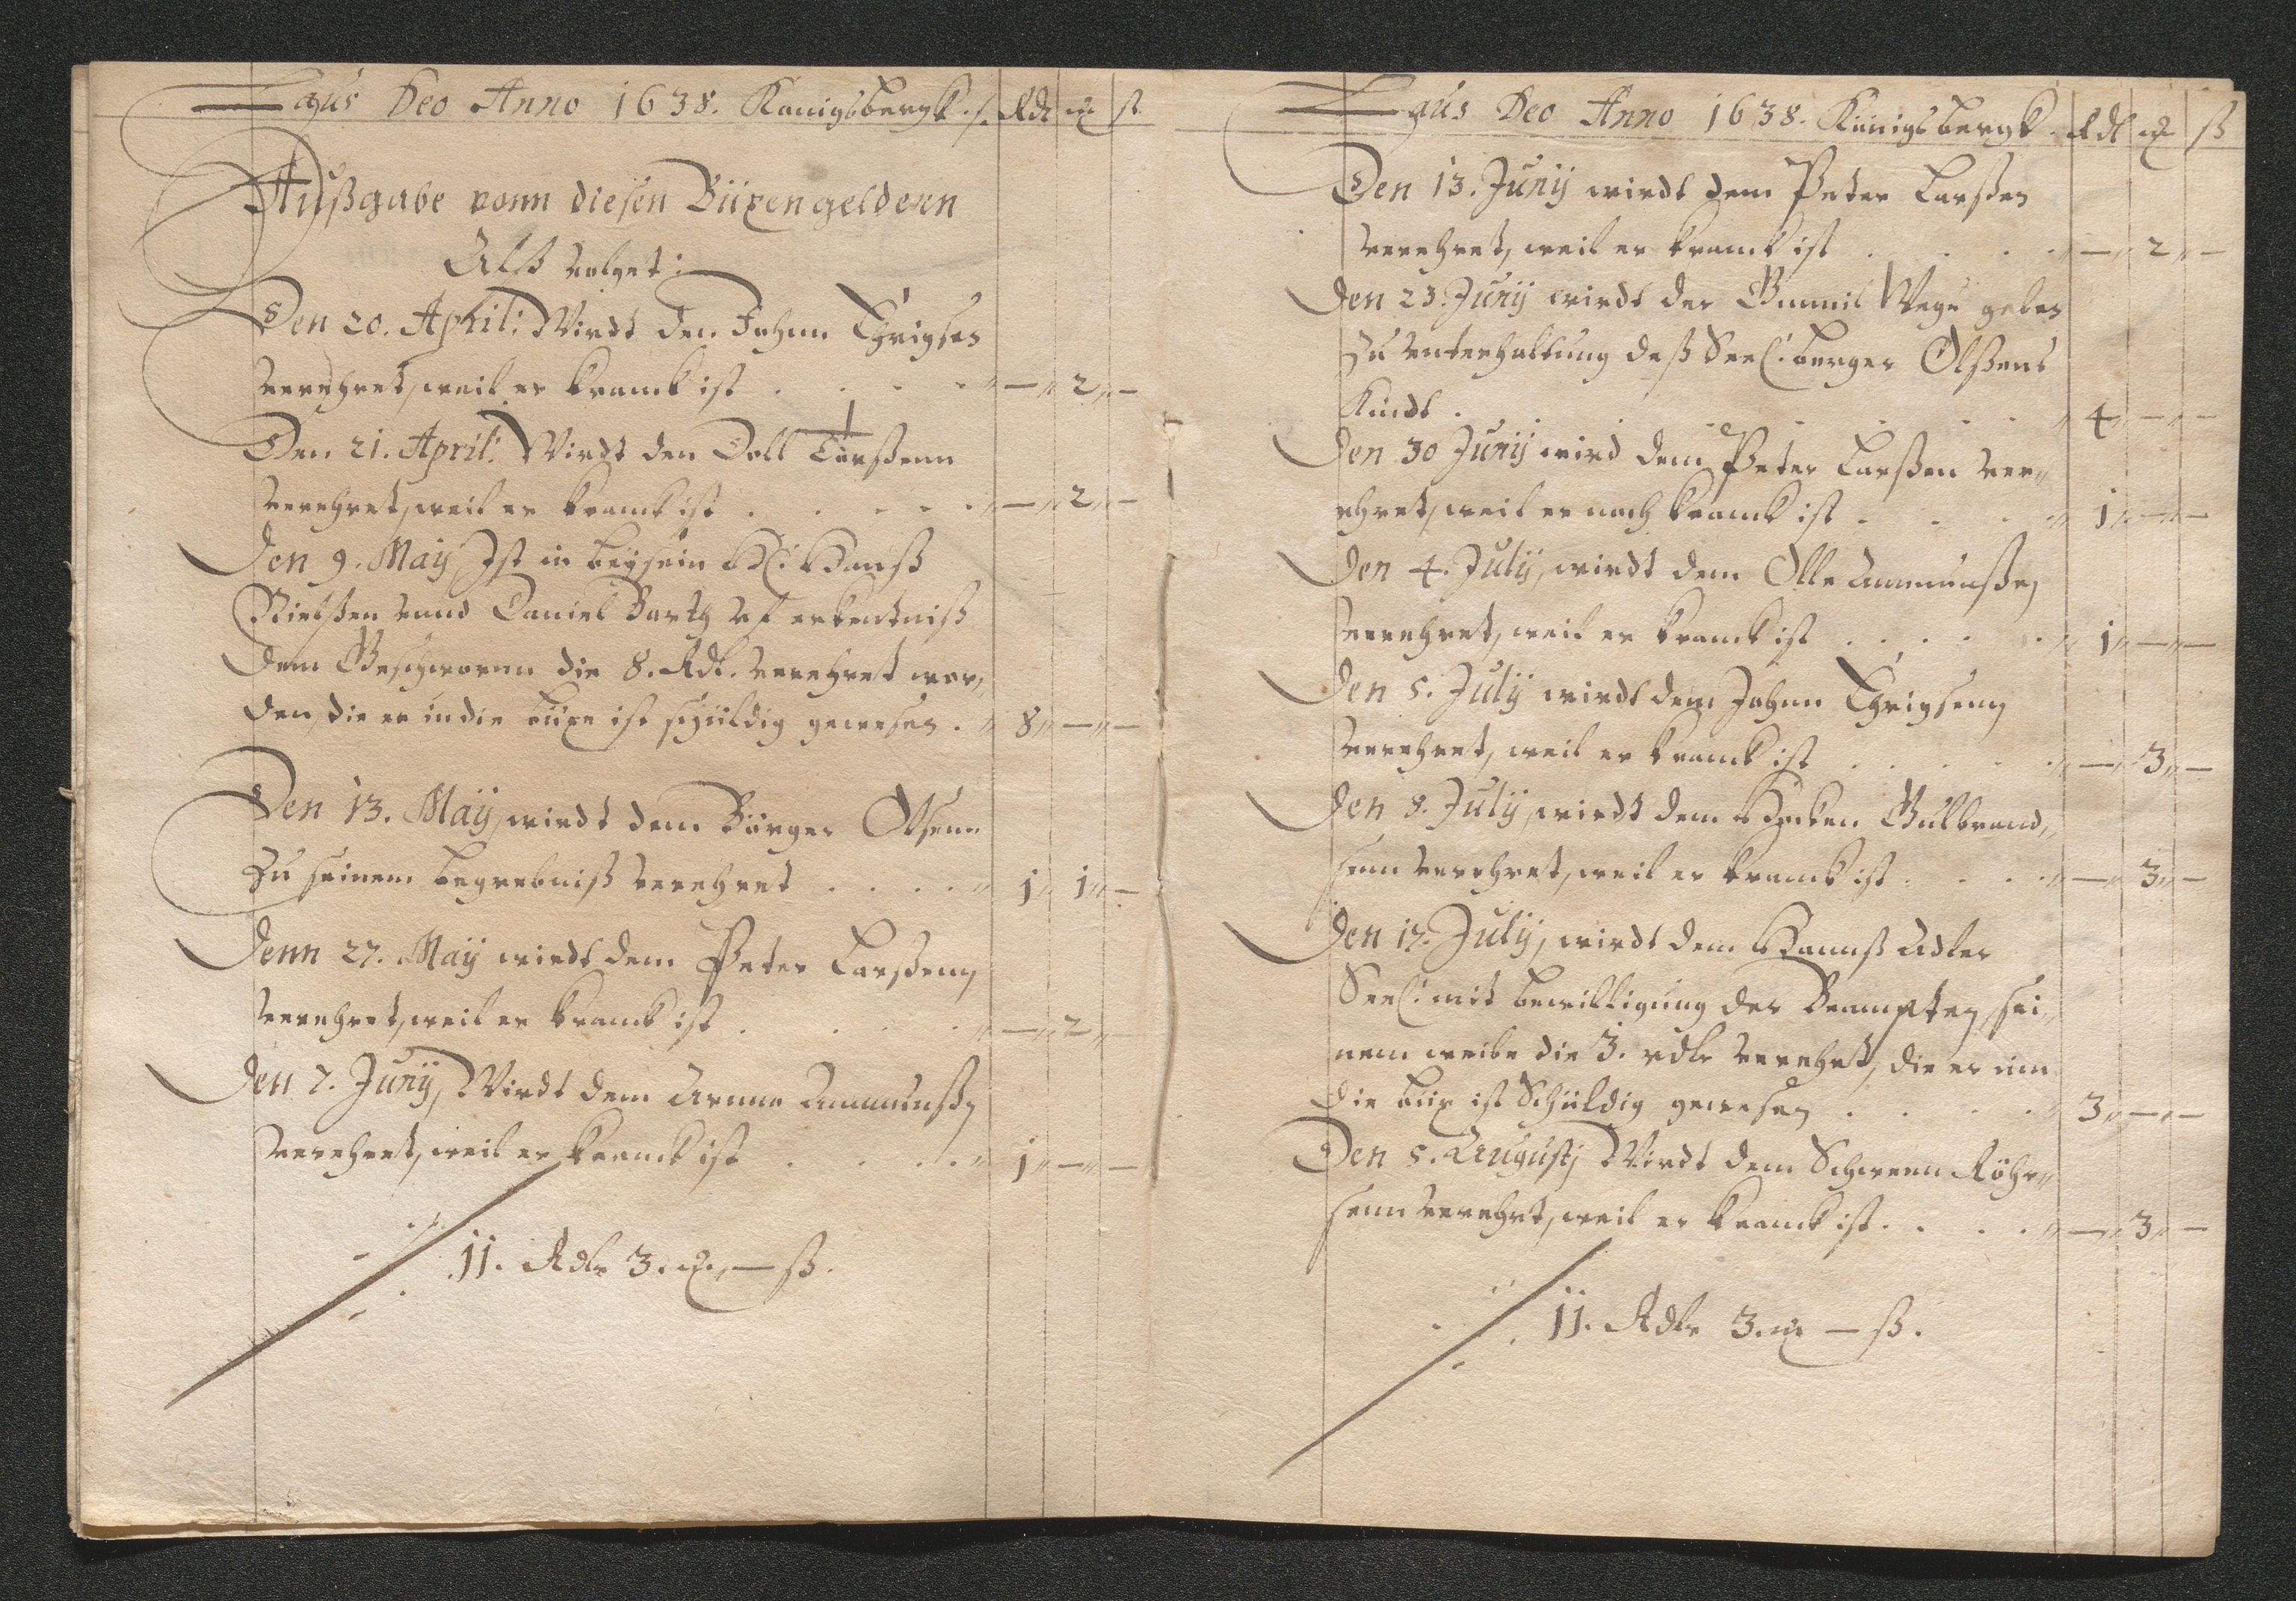 Laus Deo Anno 1638. Königsbergk. Rdl mk ß
Außgabe vonn diesen Büxengeldern
Alß volget:
Den 20. April: Wirdt den Johan Thrigsen
verehret, weil er kranck ist . . . . — 2 —
Den 21. April: Wirdt den Doll Larßenn
verehret, weil er kranck ist . . . . — 2 —
Den 9. Maij Ist in beysein H: Hanß
Nielßen vnnd Daniel Barth vf erkentniß
dem Geschwornn die 8. Rdl. verehret wor„
den, die er in die büxe ist schüldig gewesen. 8 — —
Den 13. Maij, wirdt dem Börger Olsenn
zu seinem begrebniß verehret . . . . 1 1 —
Denn 27. Maij wirdt dem Peter Larßenn
verehret, weil er kranck ist . . . . — 2
Den 7. Junij, Wirdt dem Arnne Ammunßen
verehret, weil er kranck ist . . . . 1 — —
11. Rdlr 3. mk. — ß.
Laus Deo Anno 1638. Königsbergk. Rdl mk ß
Den 13. Junij wirdt dem Peter Larßen
verehret, weil er kranck ist . . . — 2 —
Den 23. Junij wirdt der Gunnil Wege geben
zu vnterhaltung deß Seel: berger Olßens
Kindt . . . . . . 4 — —
Den 30 Junij wird dem Peter Larßen ver„
ehret, weil er noch kranck ist . . . 1 — —
Den 4. Julij, wirdt dem Olle Ammunßen
verehret, weil er kranck ist . . . . 1 — —
Den 5. Julij wirdt dem Johan Thrigsenn
verehret, weil er kranck ist . . . . — 3 —
Den 8. Julij, wirdt dem Hacken Gulbrand„
senn verehret, weil er kranck ist . . . — 3 —
Den 17. Julij, wirdt dem Hannß Adler
Seel: mit bewilligung der Beampten, sei„
nem weibe die 3. rdlr verehret, die er inn
die büx ist Schüldig gewesen . . . . 3 — —
Den 5. Augustj Wirdt dem Schwenn Röhr„
senn verehrt, weil er kranck ist . . . . — 3 —
11. Rdlr 3. mk — ß.